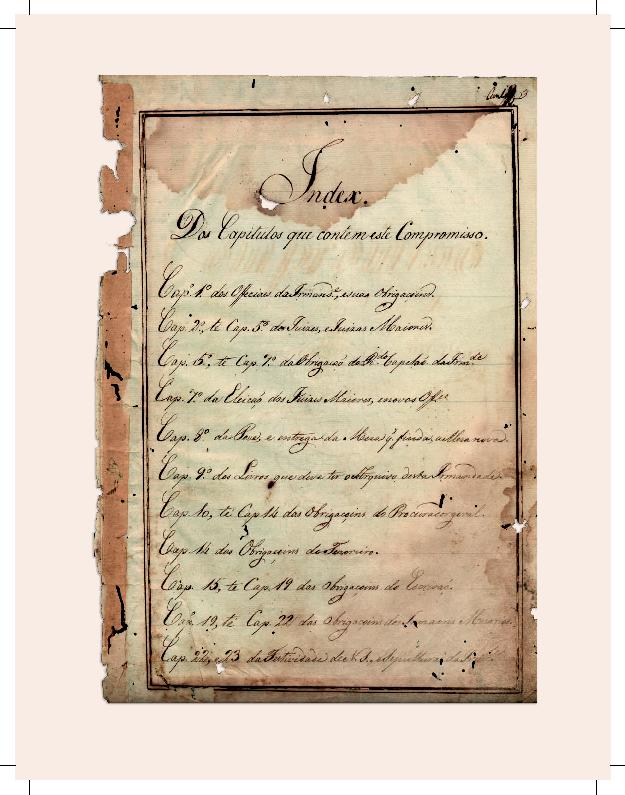 Index.
Dos Capitulos que contem este Compromisso.
Cap.º 1.º dos Officiaes da Irmand.e, e suas Obrigacoens.
Cap. 2.º, te Cap. 5.º dos Juizes, e Juizas Maiores.
Cap. 5.º, te Cap. 7.º da Obrigacaõ do R.do Capelaõ da Irm.de
Cap. 7.º da Eleicaõ dos Juizes Maiores, e novos Off.es
Cap. 8.º da Posse, e entrega da Meza q. finda, a Meza nova.
Cap. 9.º dos Livros que deve ter o Archivo desta Irmandade.
Cap. 10, te Cap. 14 das Obrigaçoins do Procurador geral.
Cap. 14 das Obrigaçoins do Tezoreiro.
Cap. 15, te Cap. 19 das Obrigaçoins do Escrivaõ.
Cap. 19, te Cap. 22 das Obrigaçoins dos Irmaons Maiores.
Cap. 22, e 23 da Festividade de N. S., e Sepulturas da